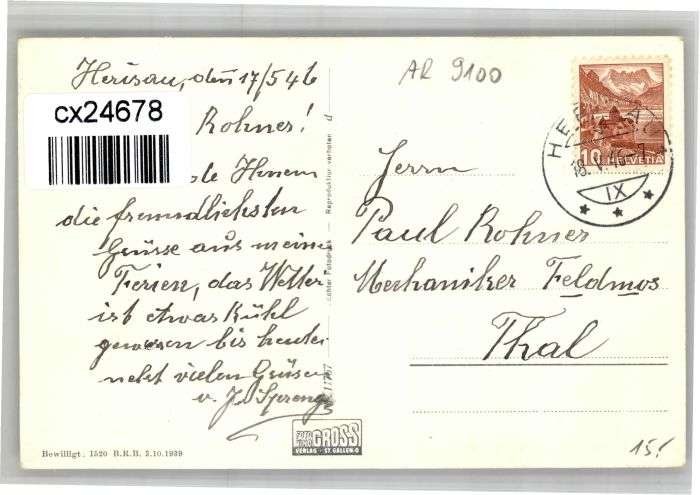 Herisau, den 17/5 46
cx24678
Rohner!
Ihnen
die freundlichsten
Grüsse aus meinen
Ferien, das Wetter
ist etwas Kühl
gewesen bis heute.
nebst vielen Grüsen
v. J. Spreng
AR 9100
Herrn
Paul Rohner
Mechaniker Feldmos
Thal
10 HELVETIA
HERISAU
18. V. 46
IX
Echter Fotodruck — Reproduktion verboten
11767
FOTO GROSS
VERLAG - ST. GALLEN-O
Bewilligt, 1520 B.R.B. 3.10.1939
15.-